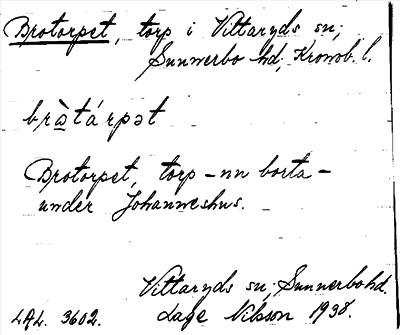 Brotorpet, torp i Vittaryds sn;
Sunnerbo hd, Kronob. l.
bràtárpət
Brotorpet, torp – nu borta –
under Johanneshus.
Vittaryds sn; Sunnerbo hd.
LAL. 3602. Lage Nilsson 1938.